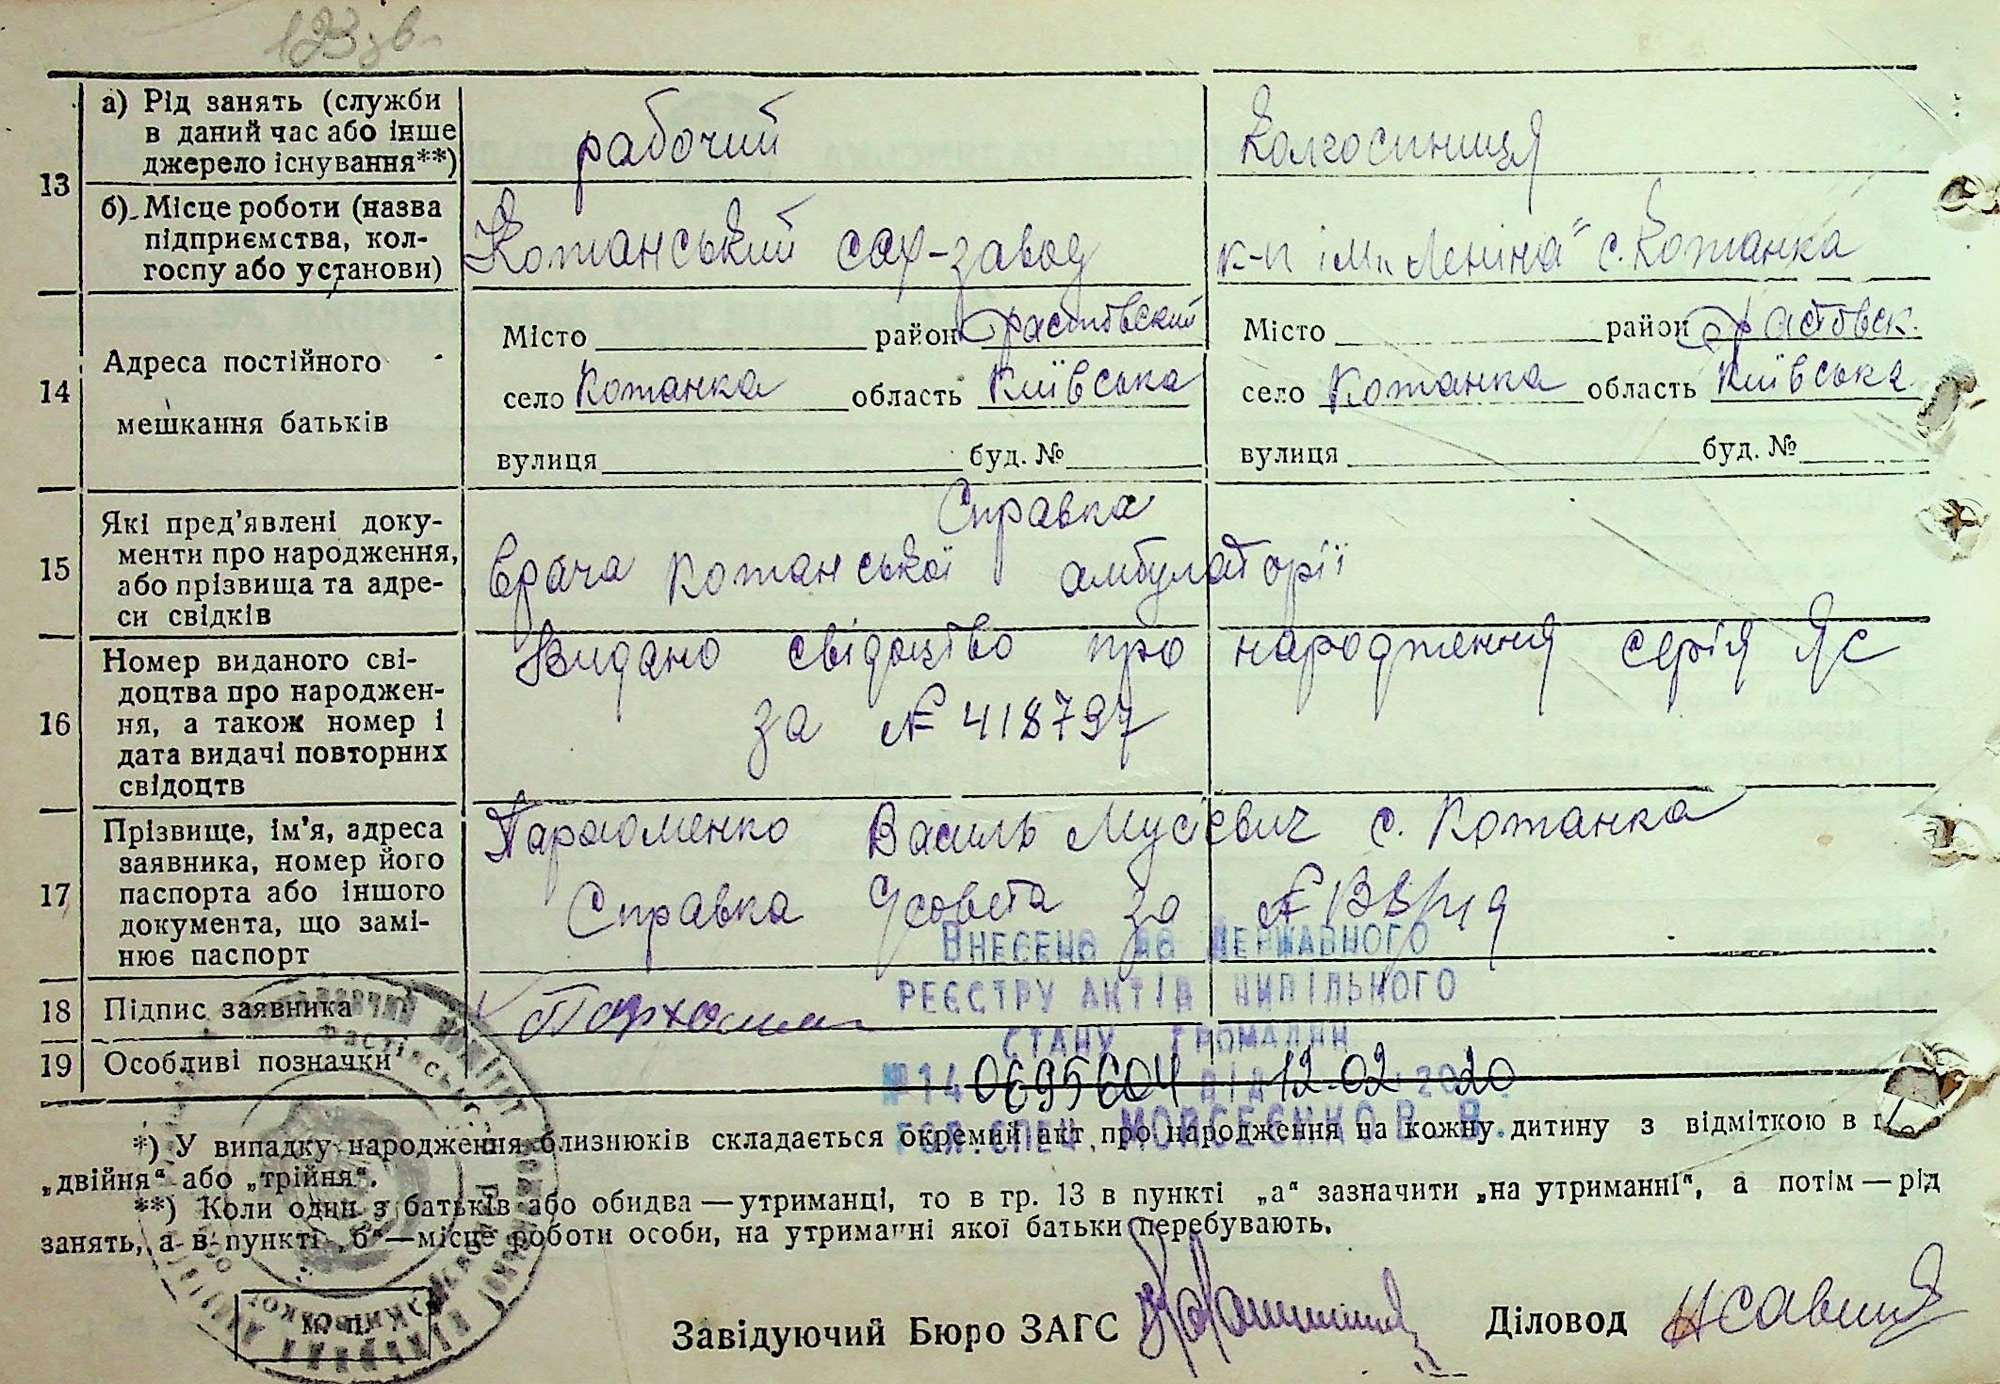 123 зв.
13
а) Рід занять (служби
в даний час або інше
джерело існування**)
рабочий
Колгоспниця
б) Місце роботи (назва
підприємства, кол-
госпу або установи)
Кожанський сах-завод
к-п ім. „Леніна" с. Кожанка
14
Адреса постійного
мешкання батьків
Місто район Фастовский
село Кожанка область Київська
вулиця буд. №
Місто район Фастовск.
село Кожанка область Київська
вулиця буд. №
15
Які пред'явлені доку-
менти про народження,
або прізвища та адре-
си свідків
Справка
врача Кожанської амбулаторії
16
Номер виданого сві-
доцтва про народжен-
ня, а також номер і
дата видачі повторних
свідоцтв
Видано свідоцтво про народження серія ЯС
за № 418797
17
Прізвище, ім'я, адреса
заявника, номер його
паспорта або іншого
документа, що замі-
нює паспорт
Пархоменко Василь Мусієвич с. Кожанка
Справка за №
ВНЕСЕНО ДО ДЕРЖАВНОГО
РЕЄСТРУ АКТІВ ЦИВІЛЬНОГО
СТАНУ ГРОМАДЯН
18
Підпис заявника
19
Особливі позначки
№ 14 0695604 від 12.02 2020
ГОЛ. СПЕЦ. МОВСЕЄНКО В. В.
*) У випадку народження близнюків складається окремий акт про народження на кожну дитину з відміткою в
„двійня" або „трійня".
**) Коли один з батьків або обидва — утриманці, то в гр. 13 в пункті „а" зазначити „на утриманні", а потім — рід
занять, а в пункті „б"—місце роботи особи, на утриманні якої батьки перебувають.
М. П.
Завідуючий Бюро ЗАГС
Діловод